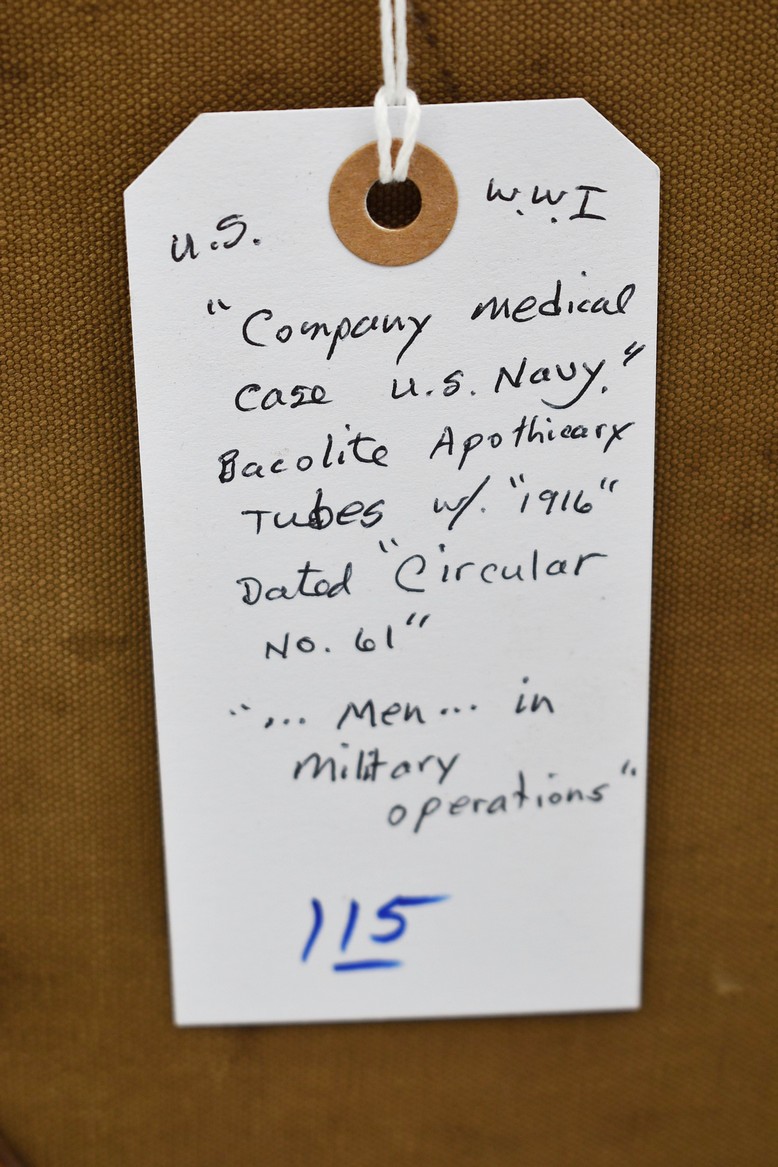 U.S. W.W.I
"Company medical
Case U.S. Navy."
Bacolite Apothicary
Tubes w/. "1916"
Dated "Circular
No. 61"
"... Men... in
military
operations"
115